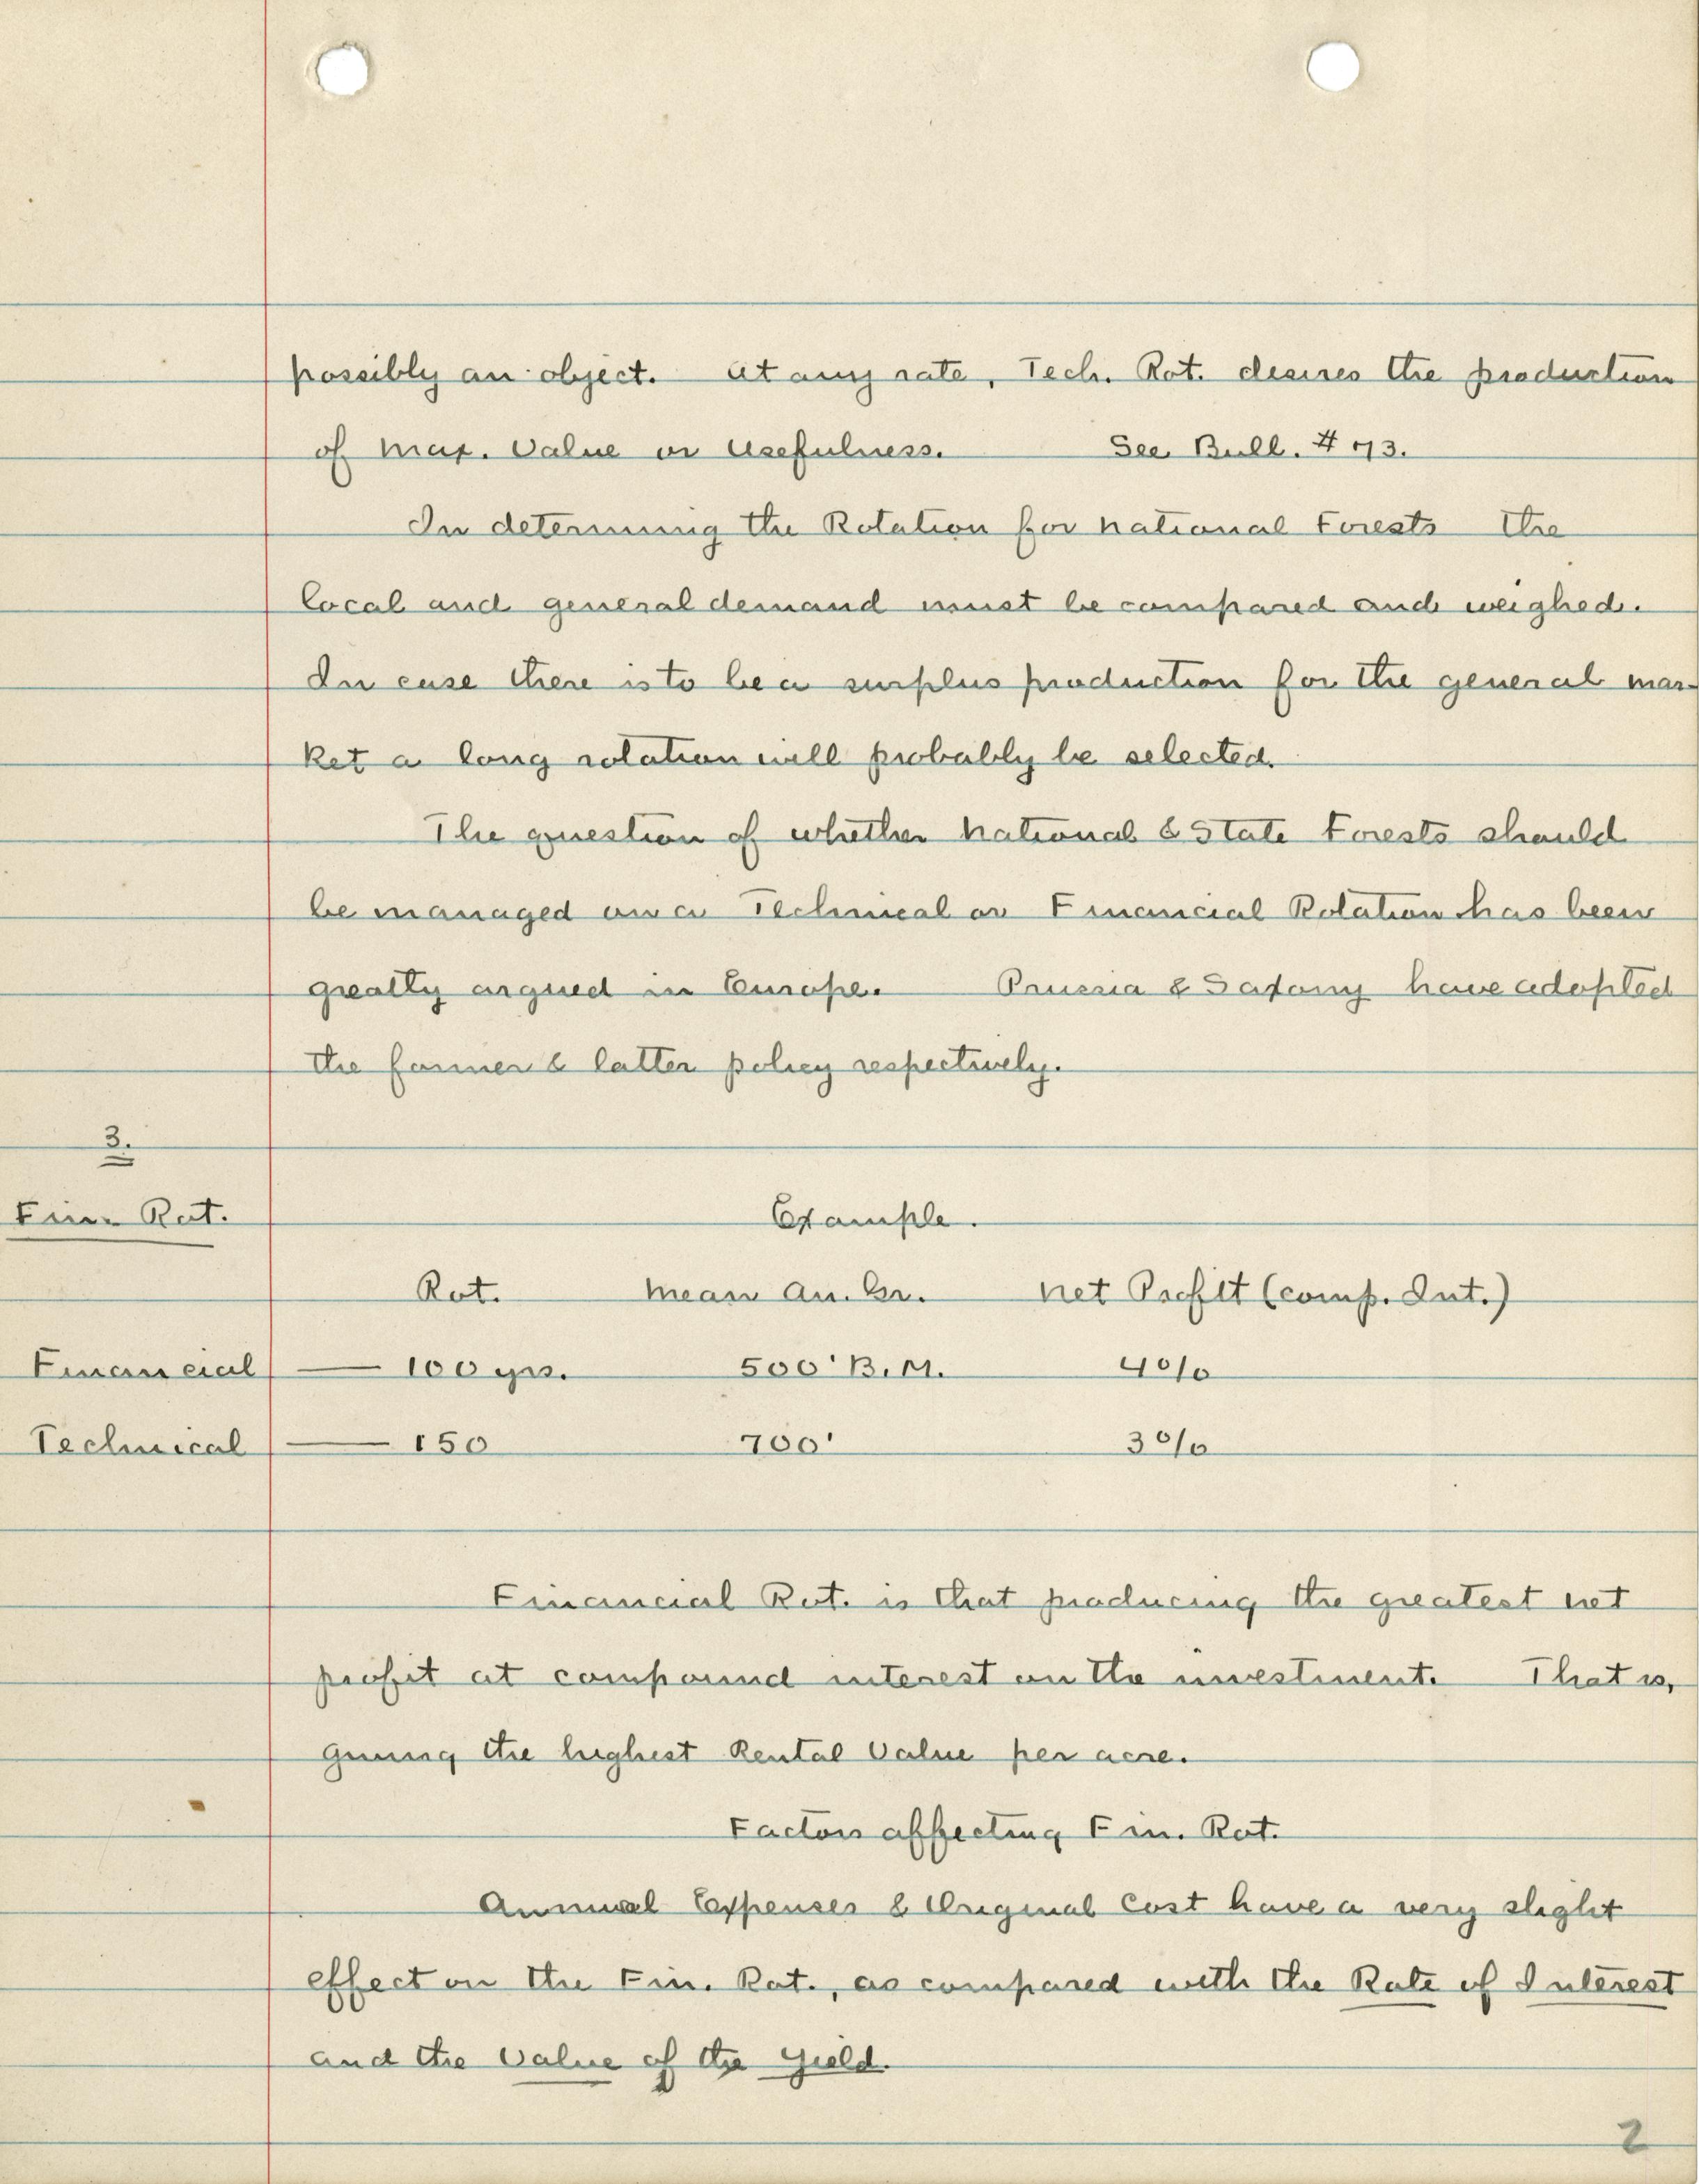 possibly an object. At any rate, Tech. Rot. desires the production
of max. Value or Usefulness. See Bull. #
In determining the Rotation for National Forests the
local and general demand must be compared and weighed.
In case there is to be a surplus production for the general mar-
ket a long rotation will probably be selected.
The question of whether National & State Forests should
be managed on a Technical or Financial Rotation has been
greatly argued in Europe. Prussia & Saxony have adopted
the former & latter policy respectively.
3.
Fin. Rot. Example.
Rot. Mean An. Gr. Net Profit (comp. Int.)
Financial — 100 yrs. 500' B.M. 4%
Technical — 150 700' 3%
Financial Rot. is that producing the greatest net
profit at compound interest on the investment. That is,
giving the highest Rental Value per acre.
Factors affecting Fin. Rot.
Annual Expenses & Original Cost have a very slight
effect on the Fin. Rot., as compared with the Rate of Interest
and the Value of the Yield.
2